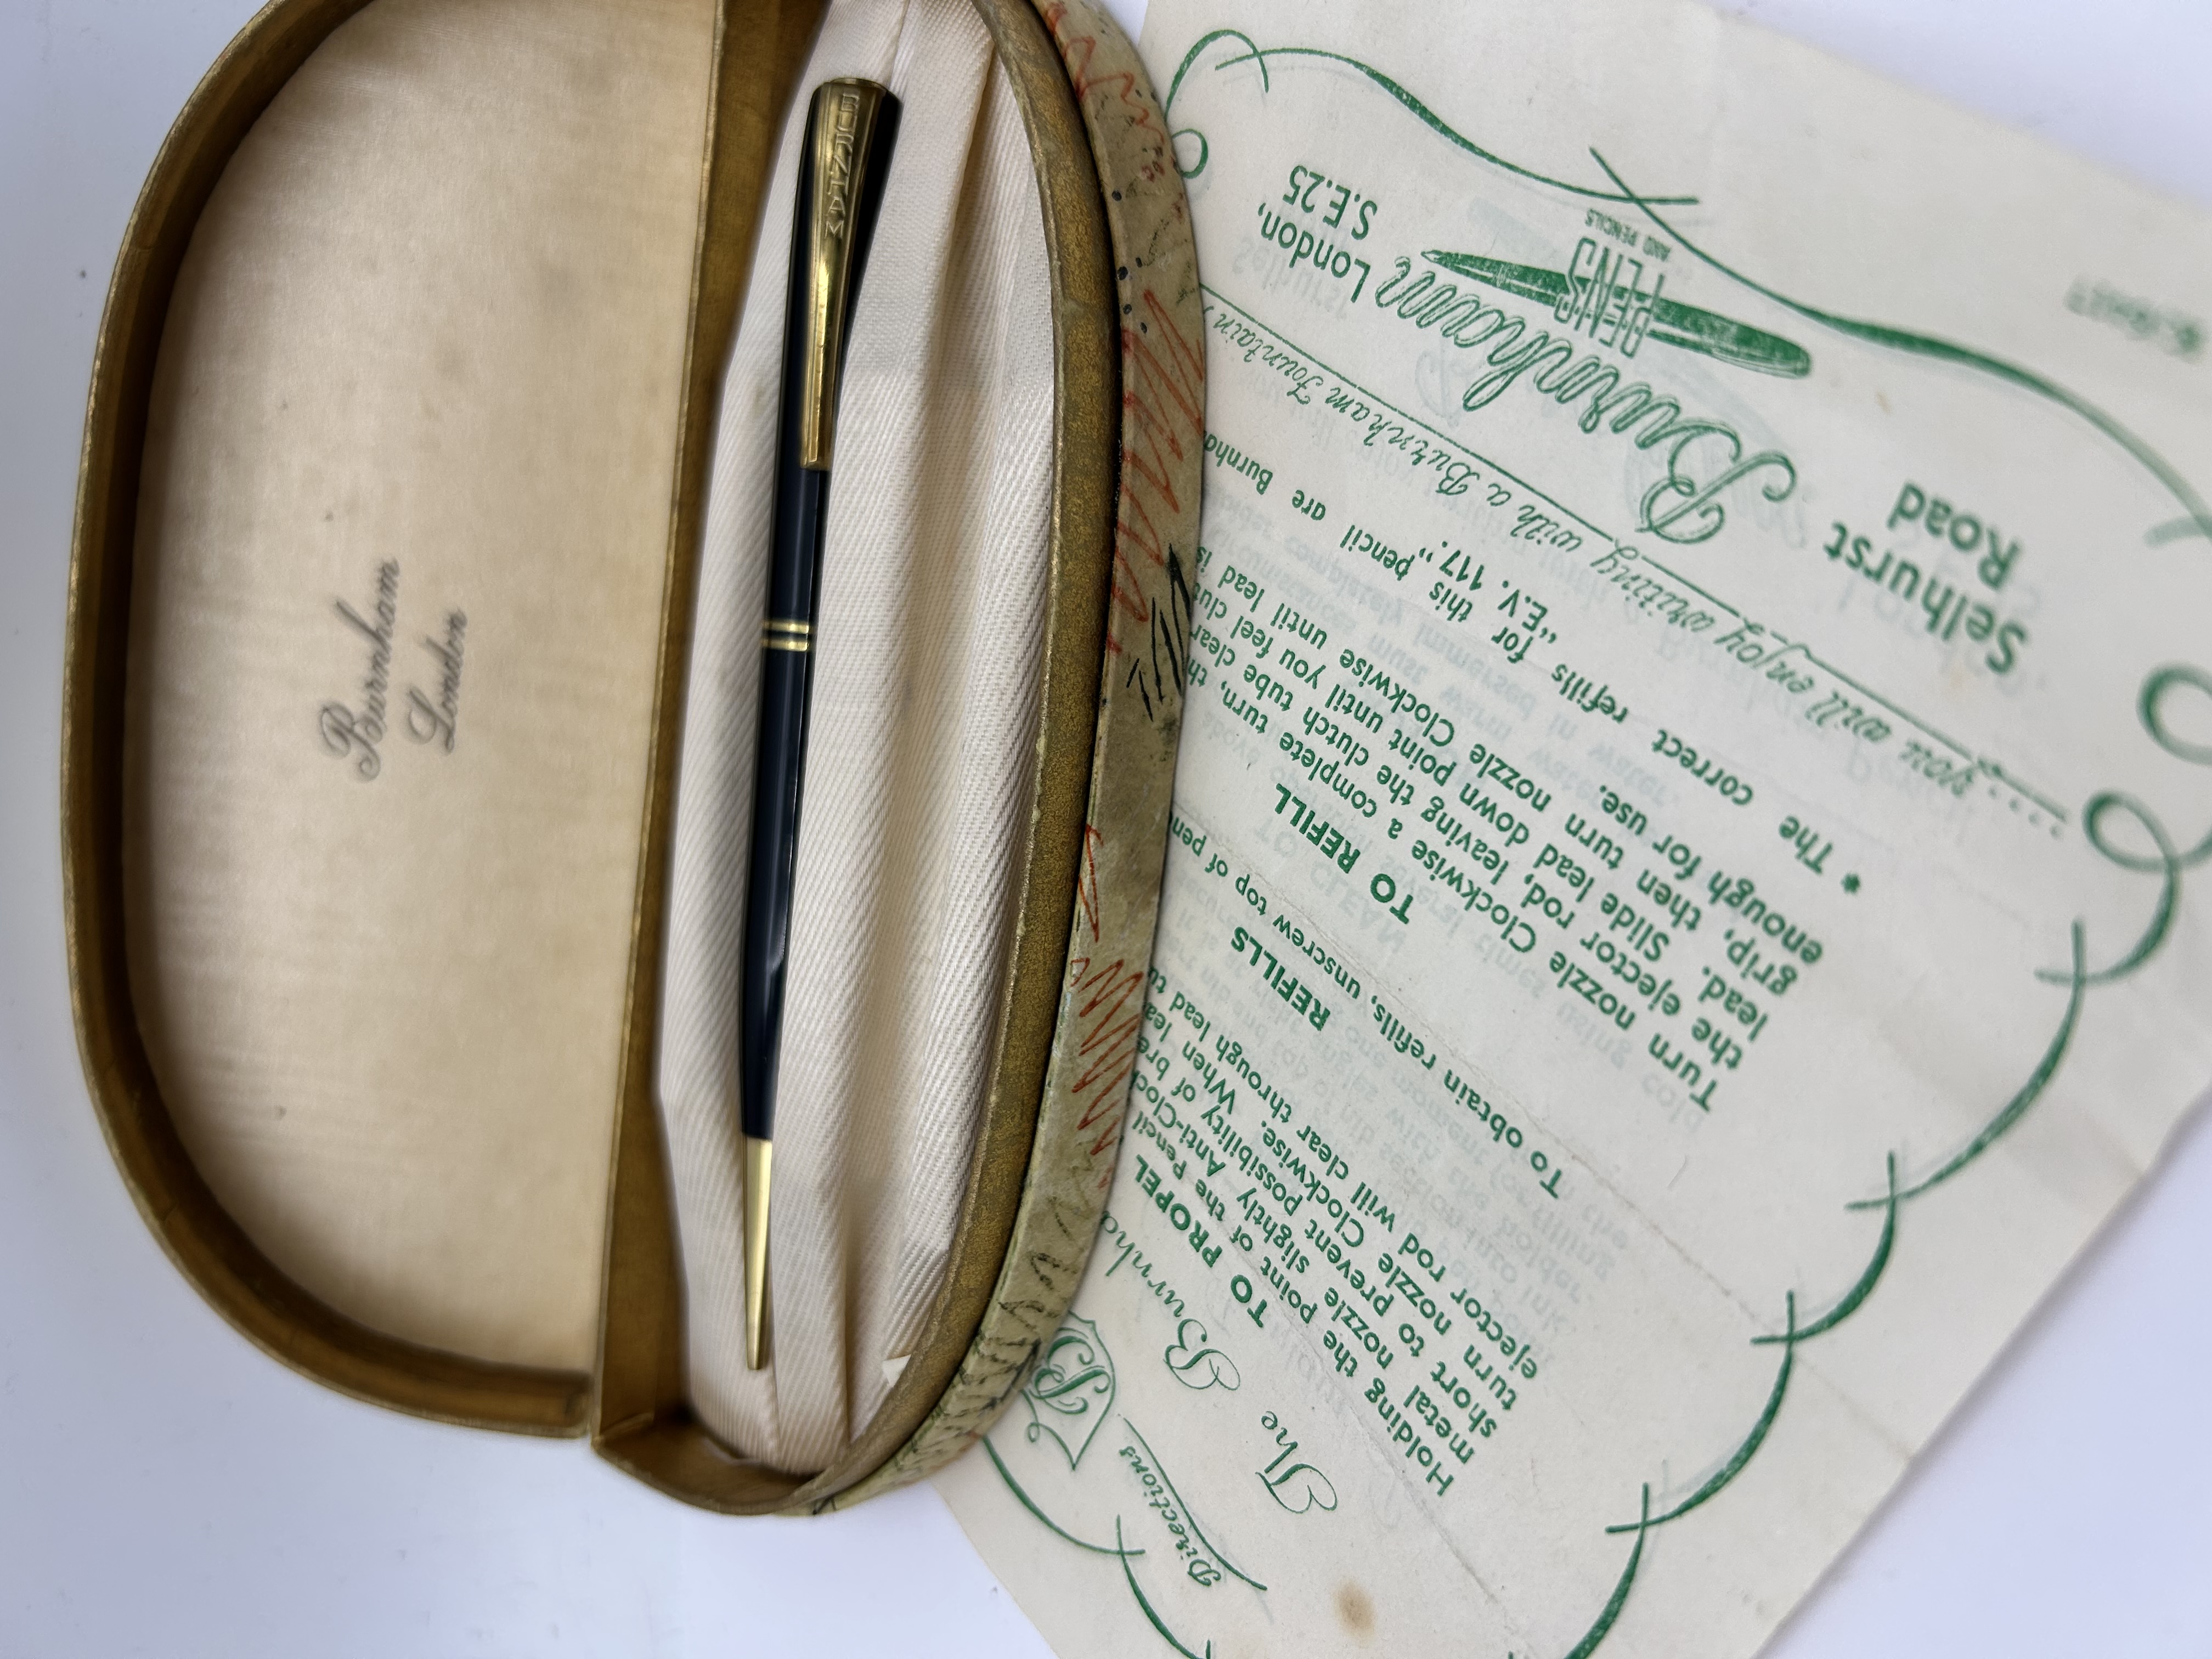 BURNHAM
Burnham
London
Directions
The Burnha
TO PROPEL
Holding the point of the Pencil
metal nozzle slightly Anti-Cloc
short to prevent possibility of bre
turn nozzle Clockwise. When lea
ejector rod will clear through lead tu
REFILLS
To obtain refills, unscrew top of pen
TO REFILL
Turn nozzle Clockwise a complete turn, th
the ejector rod, leaving the clutch tube clear
lead. Slide lead down point until you feel clut
grip, then turn nozzle Clockwise until lead is
enough for use.
* The correct refills for this pencil are Burnha
"E.V. 117."
.... you will enjoy writing with a Burnham Fountain
Selhurst
Road
Burnham
PENS
AND PENCILS
London,
S.E.25